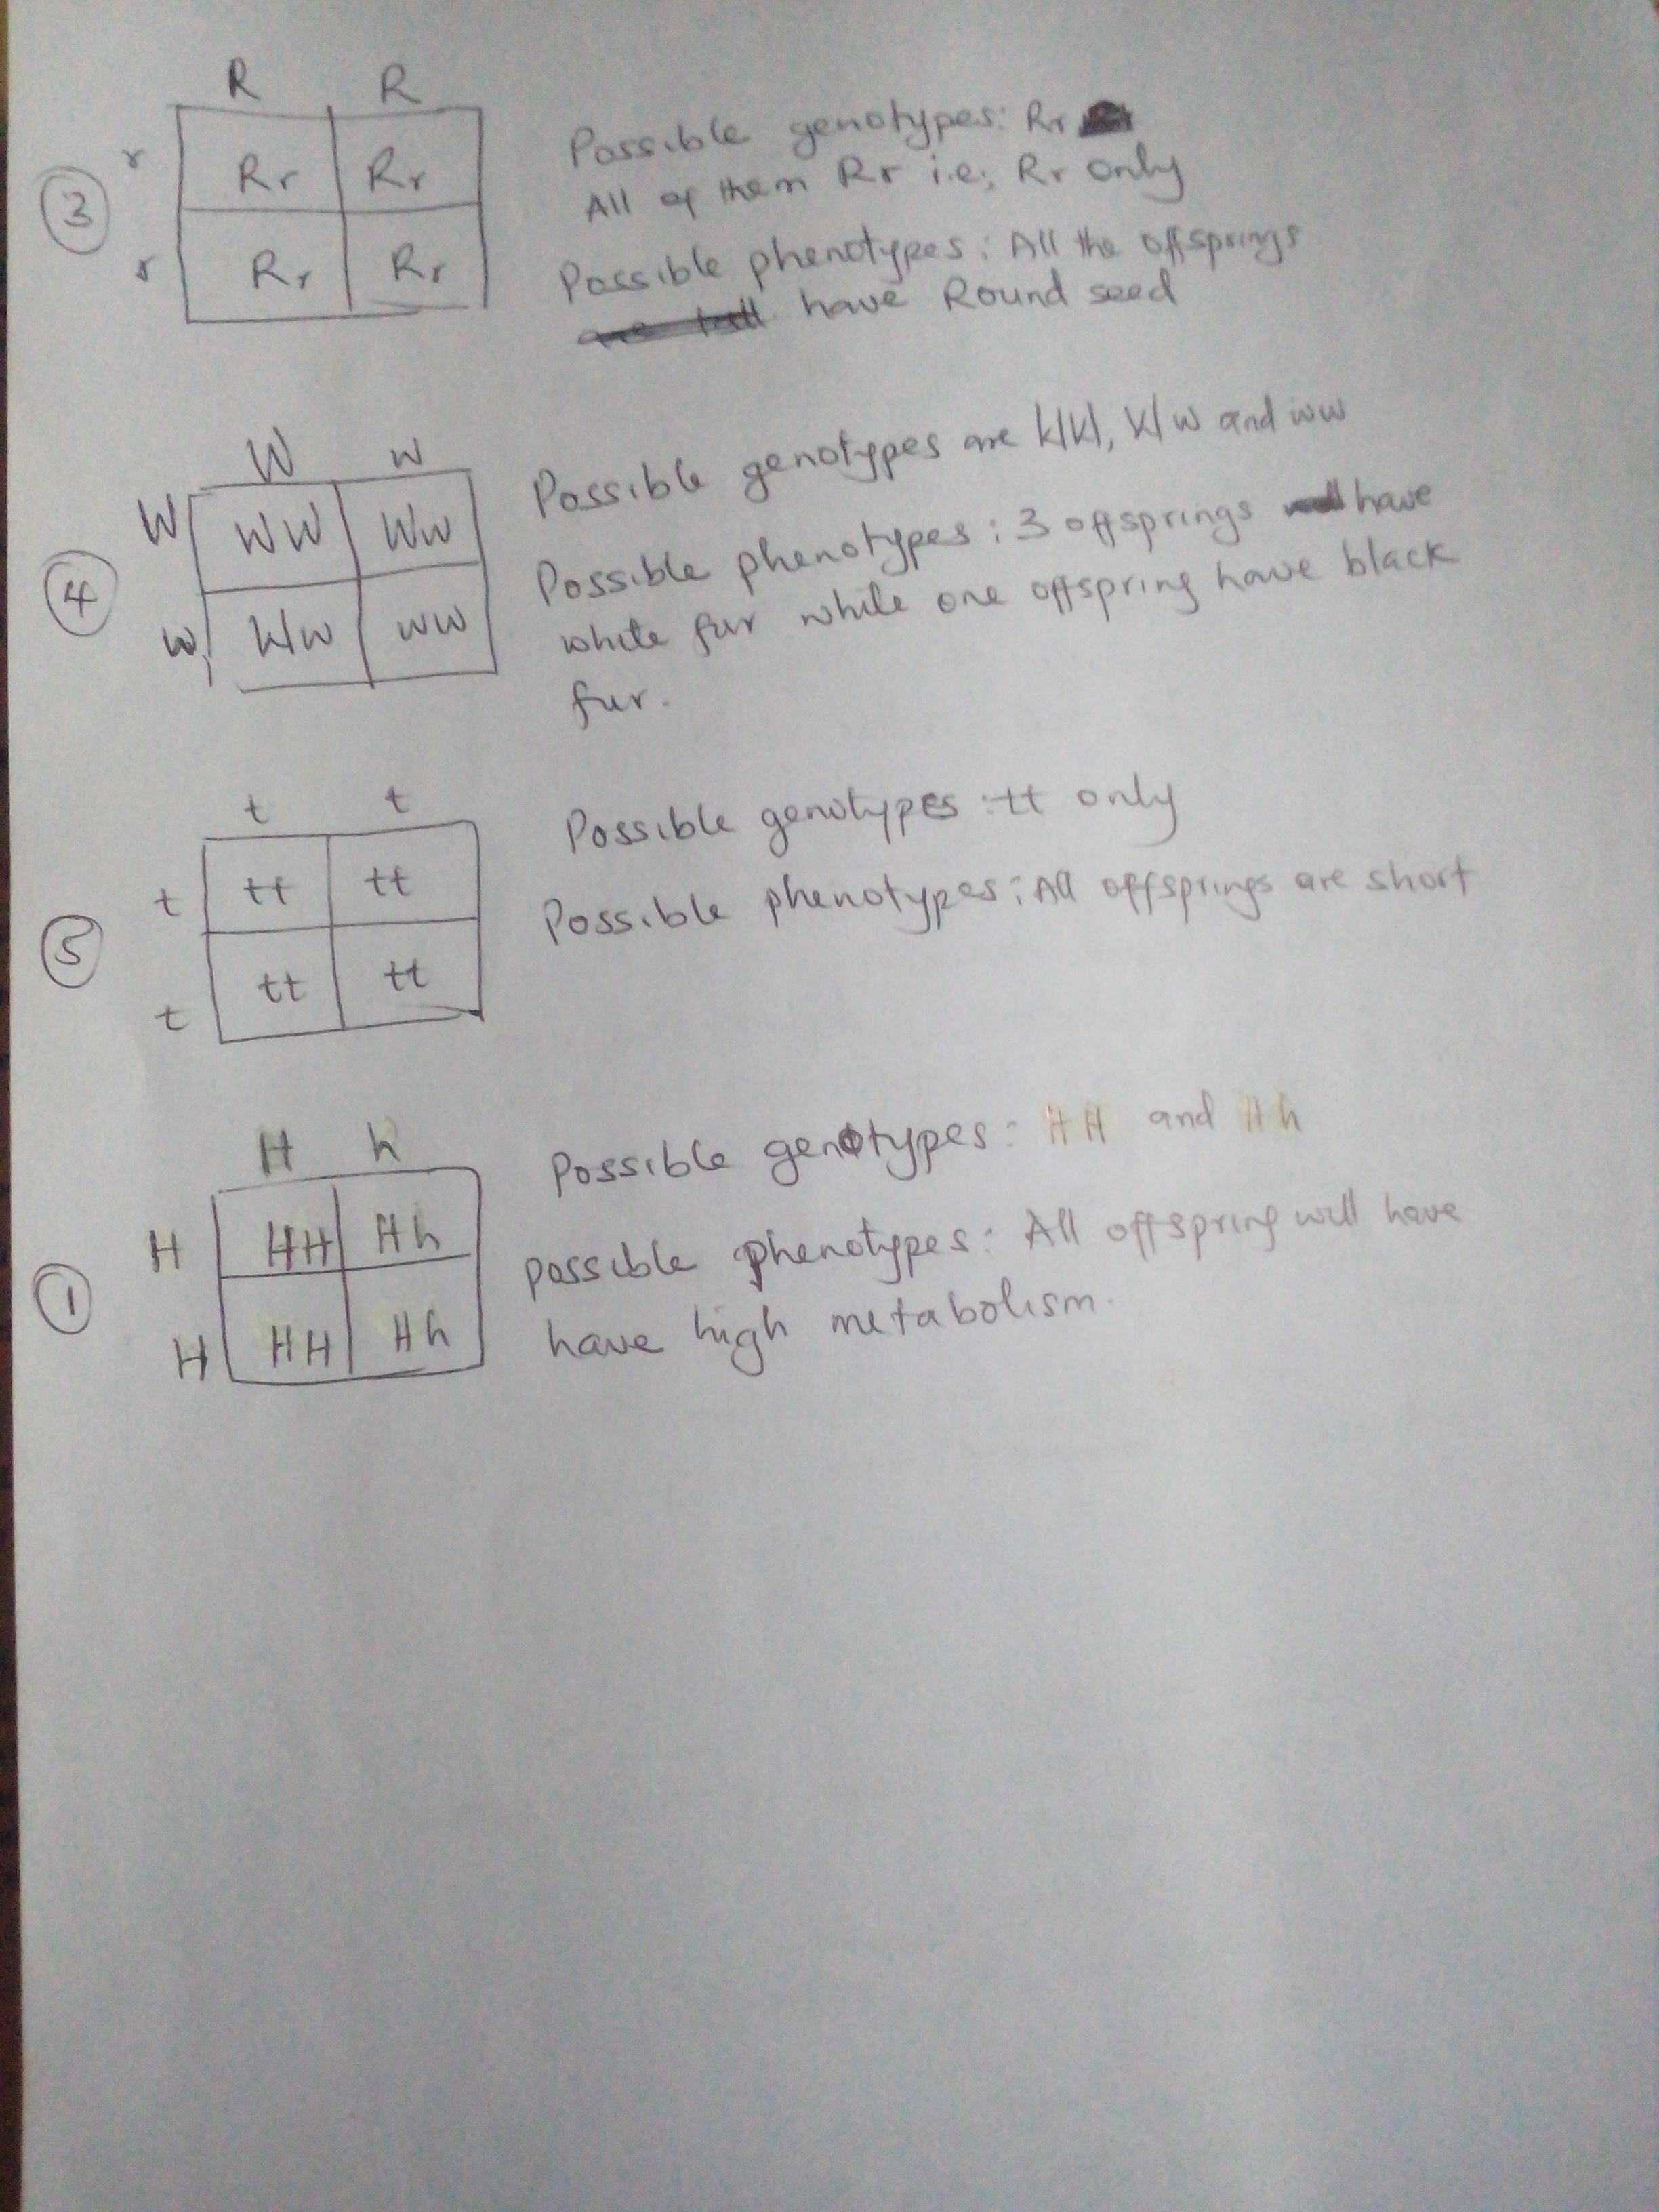 R R
③
r Rr Rr
r Rr Rr
Possible genotypes: Rr
All of them Rr i.e., Rr only
Possible phenotypes: All the offsprings
are tall have Round seed
W w
④
W WW Ww
w Ww ww
Possible genotypes are WW, Ww and ww
Possible phenotypes: 3 offsprings have
white fur while one offspring have black
fur.
t t
⑤
t tt tt
t tt tt
Possible genotypes: tt only
Possible phenotypes: All offsprings are short
H h
①
H HH Hh
H HH Hh
Possible genotypes: HH and Hh
possible phenotypes: All offspring will have
have high metabolism.